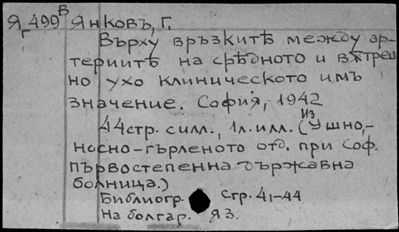 Яг499в Янковъ, Г.
Върху връзкитѣ между ар-
териитѣ на срѣдното и вѫтреш
но ухо клиническото имъ
значение. София, 1942
44стр. с илл., 1л. илл. (Из Ушно,-
носно-гърленото отд. при Соф.
първостепенна държавна
болница.)
Библиогр. стр. 41-44
На болгар. яз.